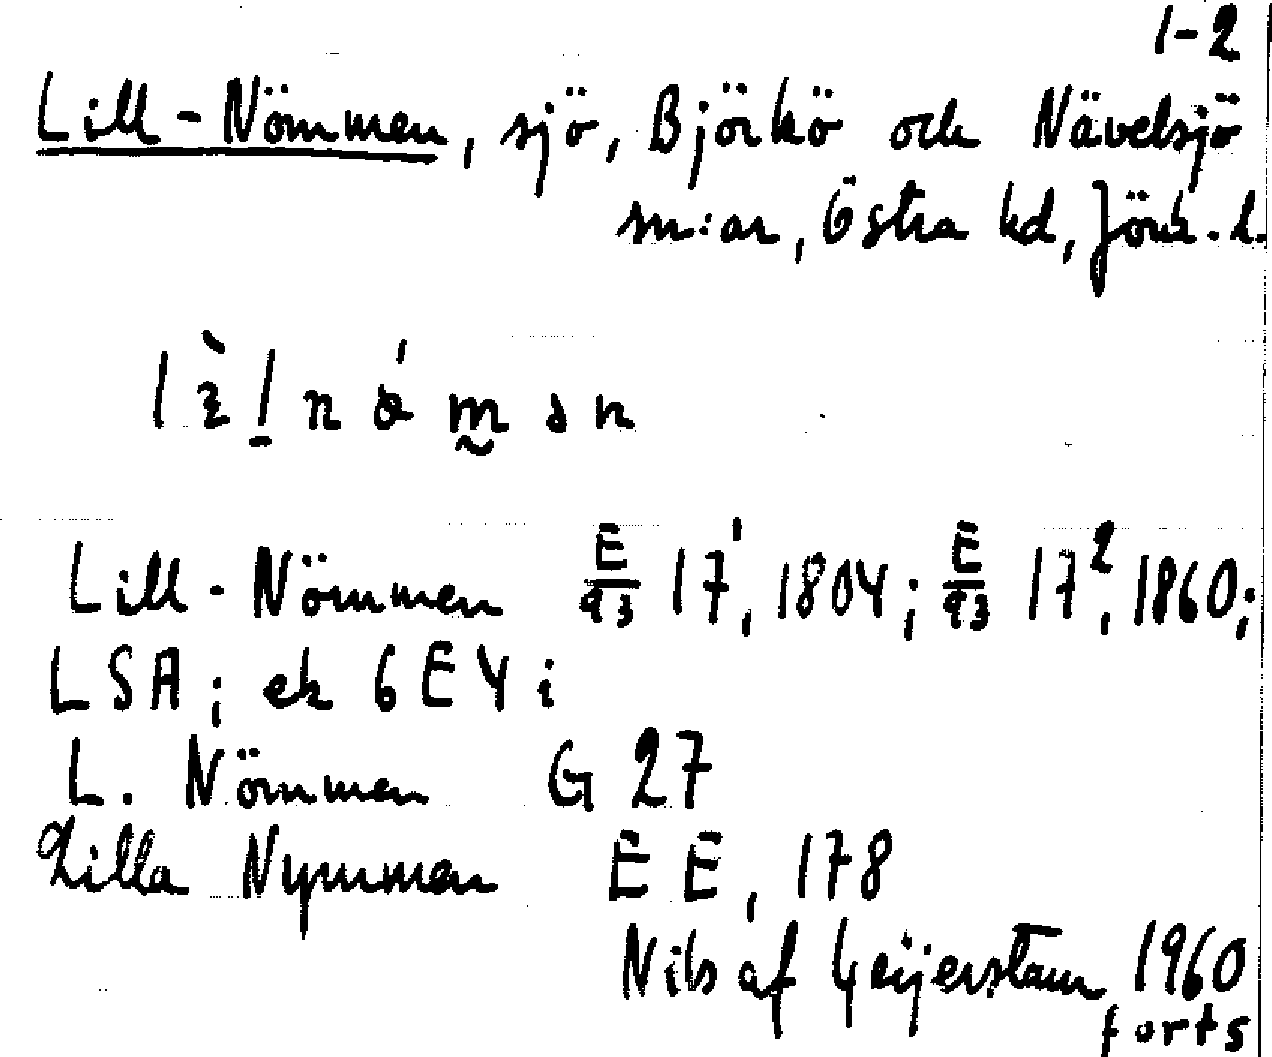 1-2
Lill-Nömmen, sjö, Björkö och Nävelsjö
sn:ar, Östra hd, Jönk. l.
Lill-Nömmen E/93 17¹, 1804; E/93 17², 1860;
LSA; ek 6E4i
L. Nömmen G 27
Lilla Nymmen EE, 178
Nils af Geijerstam 1960
forts